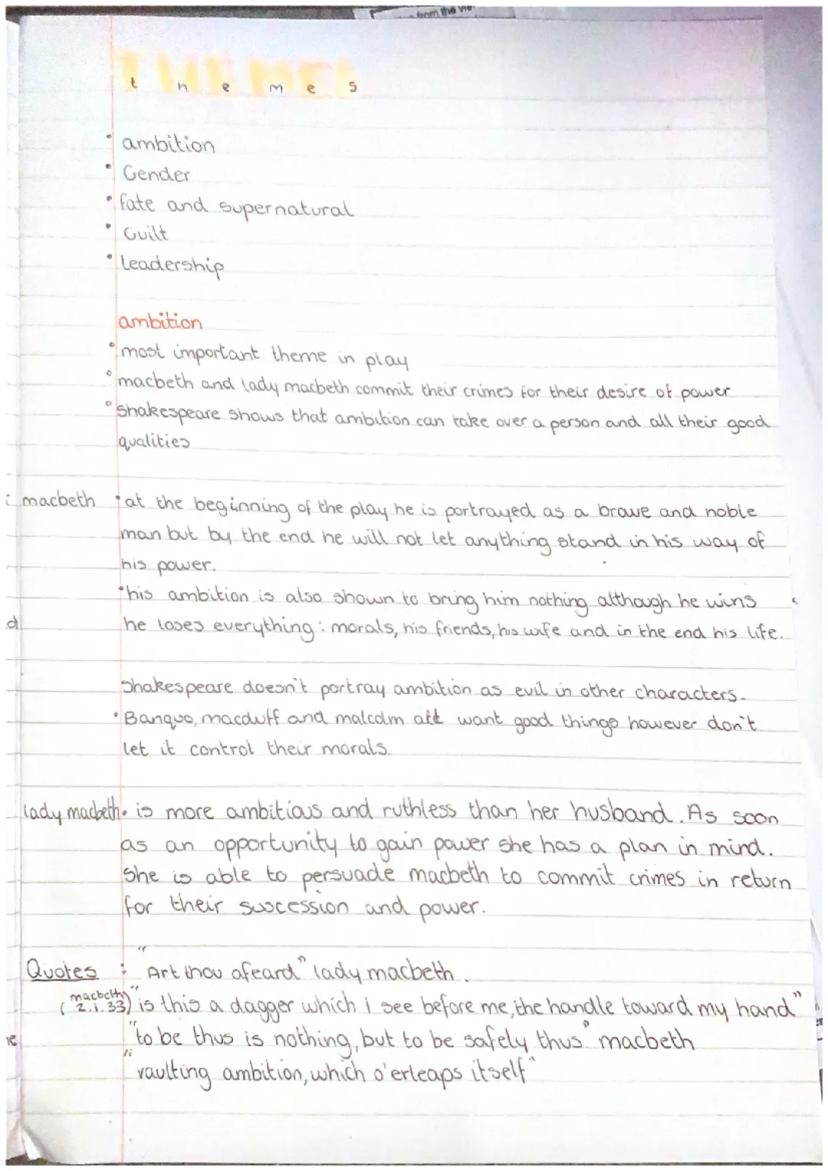 from the vie
THEMES
themes
• ambition
• Gender
• fate and supernatural
• Guilt
• leadership
ambition
• most important theme in play
• macbeth and lady macbeth commit their crimes for their desire of power
• shakespeare shows that ambition can take over a person and all their good
qualities
: macbeth • at the beginning of the play he is portrayed as a brave and noble
man but by the end he will not let anything stand in his way of
his power.
• his ambition is also shown to bring him nothing although he wins
d he loses everything: morals, his friends, his wife and in the end his life.
shakespeare doesn't portray ambition as evil in other characters.
• Banquo, macduff and malcolm all want good things however don't
let it control their morals.
lady macbeth • is more ambitious and ruthless than her husband. As soon
as an opportunity to gain power she has a plan in mind.
she is able to persuade macbeth to commit crimes in return
for their suscession and power.
Quotes : "Art thou afeard" lady macbeth.
(macbeth 2.1.33) "is this a dagger which i see before me, the handle toward my hand"
"to be thus is nothing, but to be safely thus" macbeth
"vaulting ambition, which o'erleaps itself"